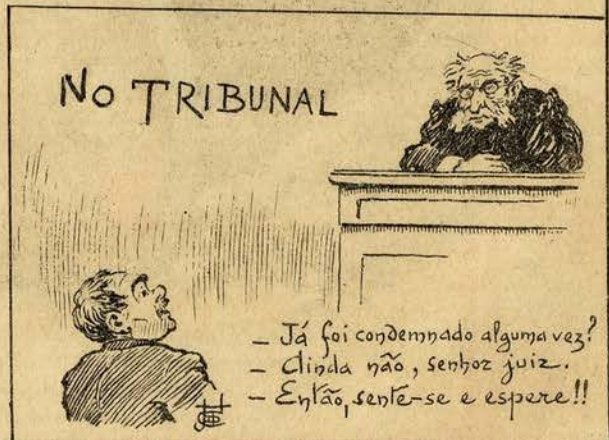 No TRIBUNAL
– Já foi condemnado alguma vez?
– Ainda não, senhor juiz.
– Então, sente-se e espere!!